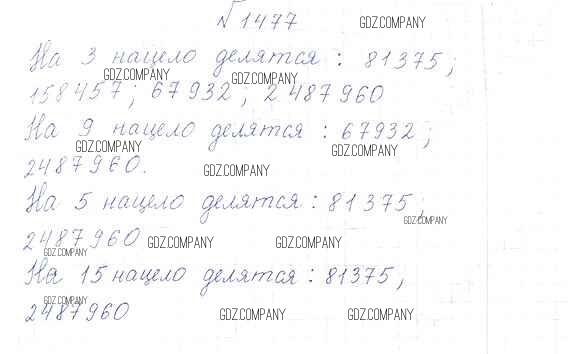 №1477
GDZ.COMPANY
На 3 нацело делятся : 81375 ;
GDZ.COMPANY GDZ.COMPANY
158457 ; 67932 ; 2 487960
На 9 нацело делятся : 67932 ;
GDZ.COMPANY GDZ.COMPANY
2487960.
GDZ.COMPANY
На 5 нацело делятся : 81375 ;
GDZ.COMPANY
2487960
GDZ.COMPANY GDZ.COMPANY
GDZ.COMPANY
На 15 нацело делятся : 81375,
GDZ.COMPANY
2487960
GDZ.COMPANY GDZ.COMPANY